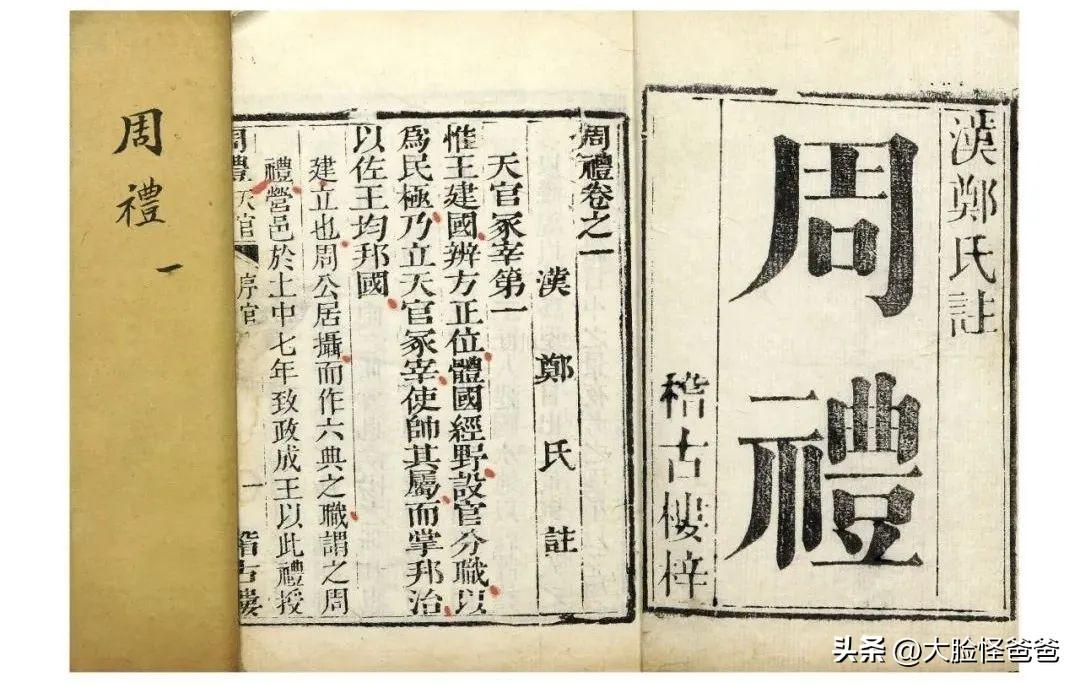 漢鄭氏註
周禮
稽古樓梓
周禮卷之一
漢鄭氏註
天官冢宰第一
惟王建國辨方正位體國經野設官分職以
為民極乃立天官冢宰使帥其屬而掌邦治
以佐王均邦國
建立也周公居攝而作六典之職謂之周
禮營邑於土中七年致政成王以此禮授
周禮 天官 序官 一 稽古樓
周禮 一
头条 @大脸怪爸爸